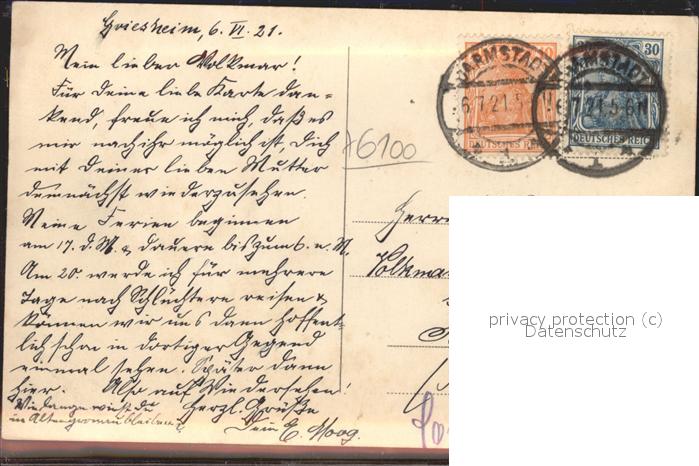 Griesheim, 6. VI. 21.
Mein lieber Volkmar!
Für Deine liebe Karte dan-
kend, freue ich mich, daß es
mir nach ihr möglich ist, Dich
mit Deiner lieben Mutter
demnächst wiederzusehen.
Meine Ferien beginnen
am 17. d. M. & dauern bis zum 6. n. M.
Am 20. werde ich für mehrere
Tage nach Schlüchtern reisen &
können wir uns dann hoffent-
lich schon in dortiger Gegend
einmal sehen. Später dann
hier. Also auf Wiedersehen!
Wie lange wirst du Herzl. Grüße
in bleiben? Dein E. Moog.
+6100
DARMSTADT
6.7.21.5-6N
DEUTSCHES REICH
DARMSTADT
30
6.7.21.5-6N
DEUTSCHES REICH
Herrn
Volkmar
privacy protection (c)
Datenschutz